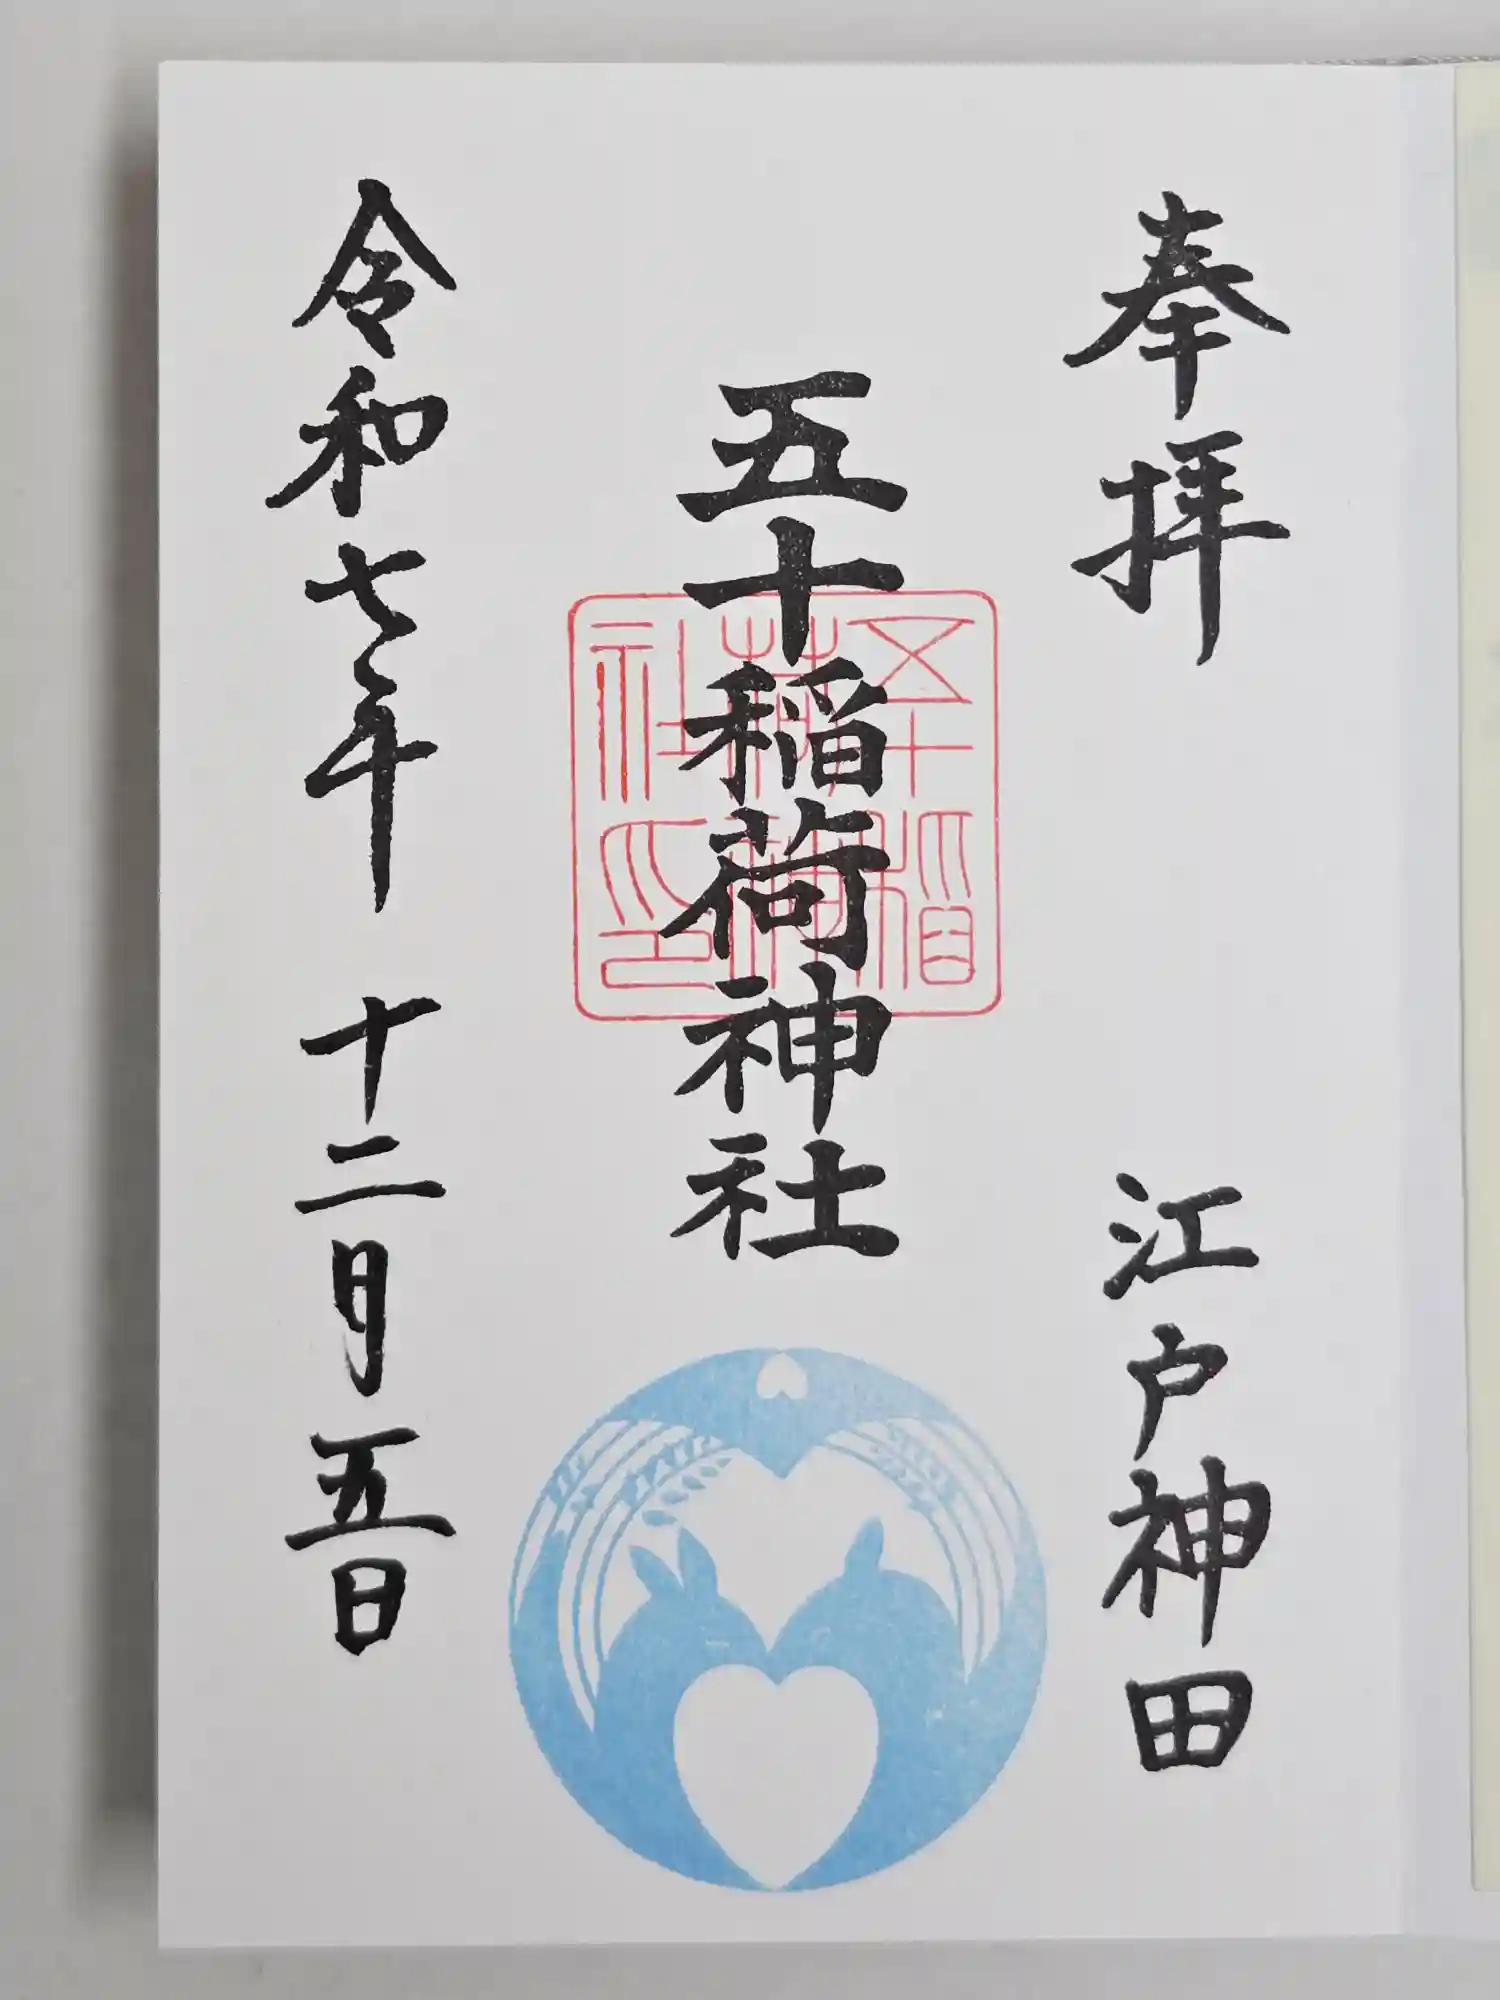 奉拝
江戸神田
五十稲荷神社
五十稲荷神社印
令和七年 十二月五日